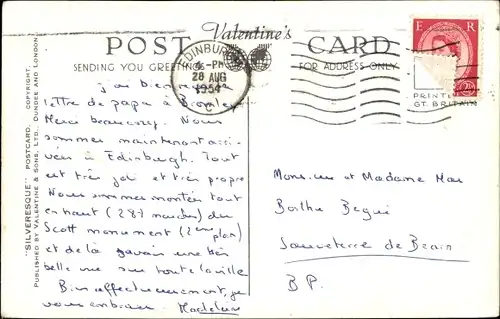 Valentine's
POST CARD
SENDING YOU GREETINGS
FOR ADDRESS ONLY
EDINBURGH
28 AUG
1954
C
E R
2½
PRINTED
GT. BRITAIN
"SILVERESQUE" POSTCARD. COPYRIGHT.
PUBLISHED BY VALENTINE & SONS, LTD., DUNDEE AND LONDON
j'ai bien reçu la
lettre de papa à Bromley
Merci beaucoup. Nous
sommes maintenant arri-
vées à Edinburgh. Tout
est très joli et très propre
Nous sommes montés tout
en haut (287 marches) du
Scott monument (2ème plan)
et de là avais une très
belle vue sur toute la ville
Bien affectueusement, je
vous embrasse. Madeleine
Monsieur et Madame Max
Barthe Bégué
Sauveterre de Béarn
B.P.